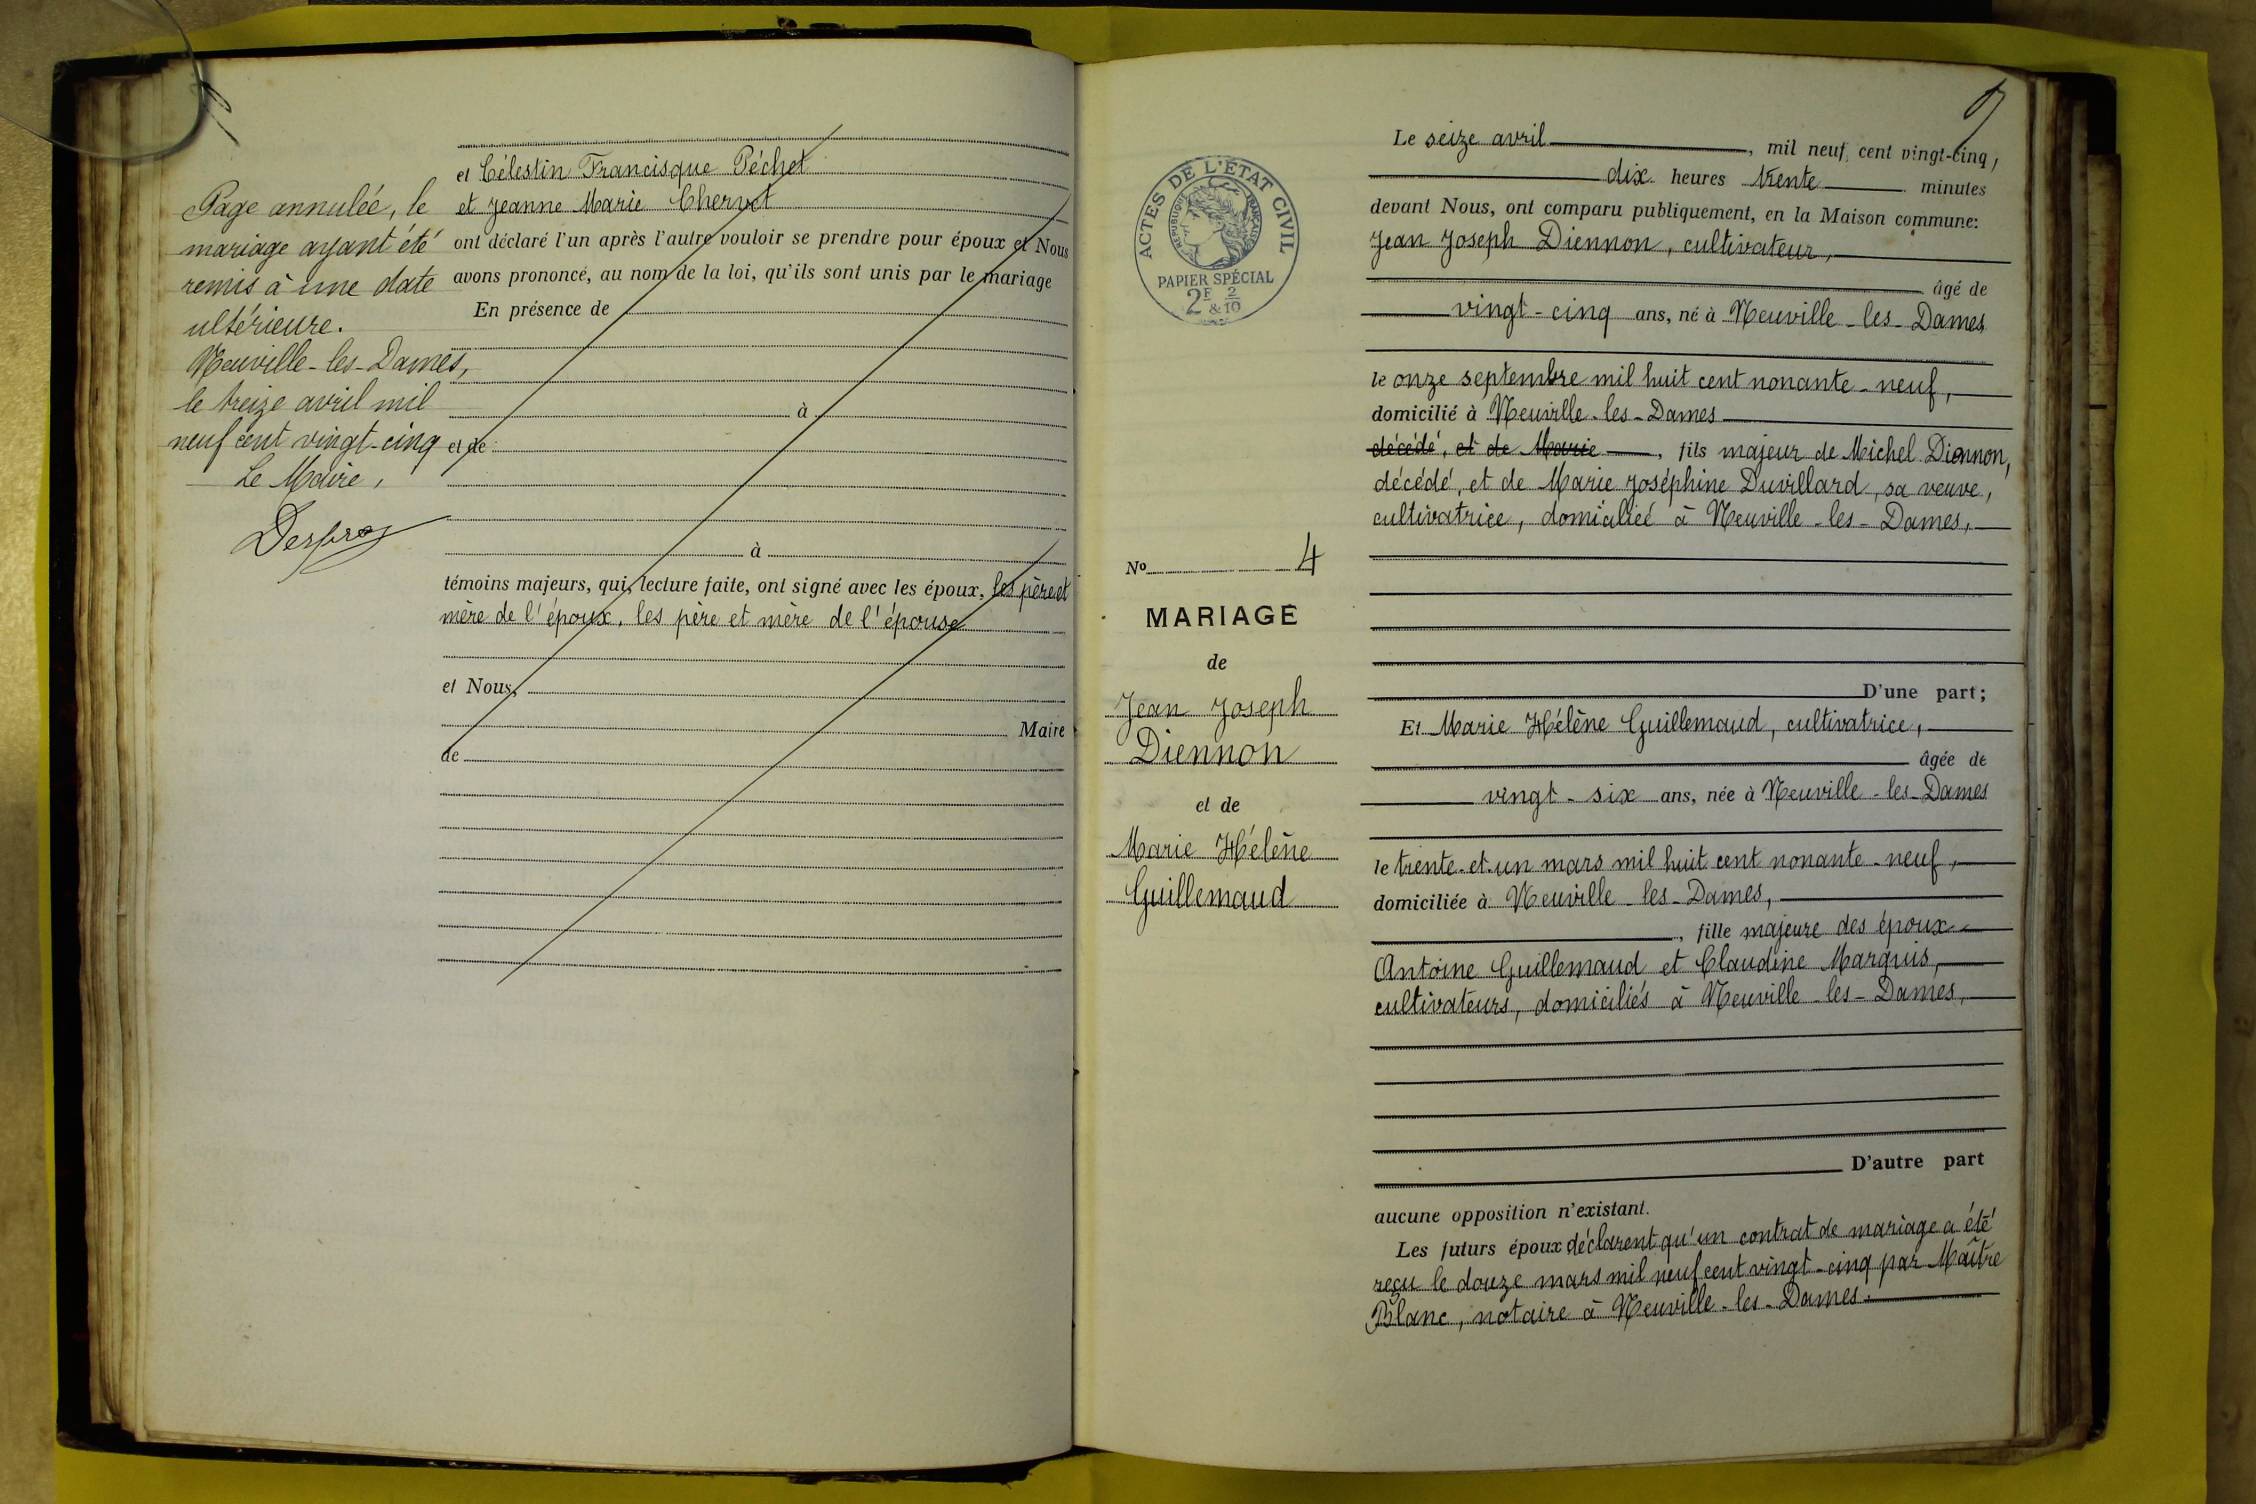 et Célestin Francisque Péchet
et Jeanne Marie Chervet
ont déclaré l'un après l'autre vouloir se prendre pour époux et Nous
avons prononcé, au nom de la loi, qu'ils sont unis par le mariage
En présence de
à
et de
à
témoins majeurs, qui, lecture faite, ont signé avec les époux, les père et
mère de l'époux, les père et mère de l'épouse
et Nous,
Maire
de
Page annulée, le
mariage ayant été
remis à une date
ultérieure.
Neuville-les-Dames,
le treize avril mil
neuf cent vingt-cinq
Le Maire,
ACTES DE L'ÉTAT CIVIL
RÉPUBLIQUE FRANÇAISE
PAPIER SPÉCIAL
2F & 2/10
No 4
MARIAGE
de
Jean Joseph
Diennon
et de
Marie Hélène
Guillemaud
Le seize avril, mil neuf cent vingt-cinq,
dix heures trente minutes
devant Nous, ont comparu publiquement, en la Maison commune:
Jean Joseph Diennon, cultivateur,
âgé de
vingt-cinq ans, né à Neuville-les-Dames
le onze septembre mil huit cent nonante-neuf,
domicilié à Neuville-les-Dames
décédé, et de Marie, fils majeur de Michel Diennon,
décédé, et de Marie Joséphine Duvillard, sa veuve,
cultivatrice, domiciliée à Neuville-les-Dames,
D'une part;
Et Marie Hélène Guillemaud, cultivatrice,
âgée de
vingt-six ans, née à Neuville-les-Dames
le trente-et-un mars mil huit cent nonante-neuf,
domiciliée à Neuville-les-Dames,
, fille majeure des époux
Antoine Guillemaud et Claudine Marquis,
cultivateurs, domiciliés à Neuville-les-Dames,
D'autre part
aucune opposition n'existant.
Les futurs époux déclarent qu'un contrat de mariage a été
reçu le douze mars mil neuf cent vingt-cinq par Maître
Blanc, notaire à Neuville-les-Dames.